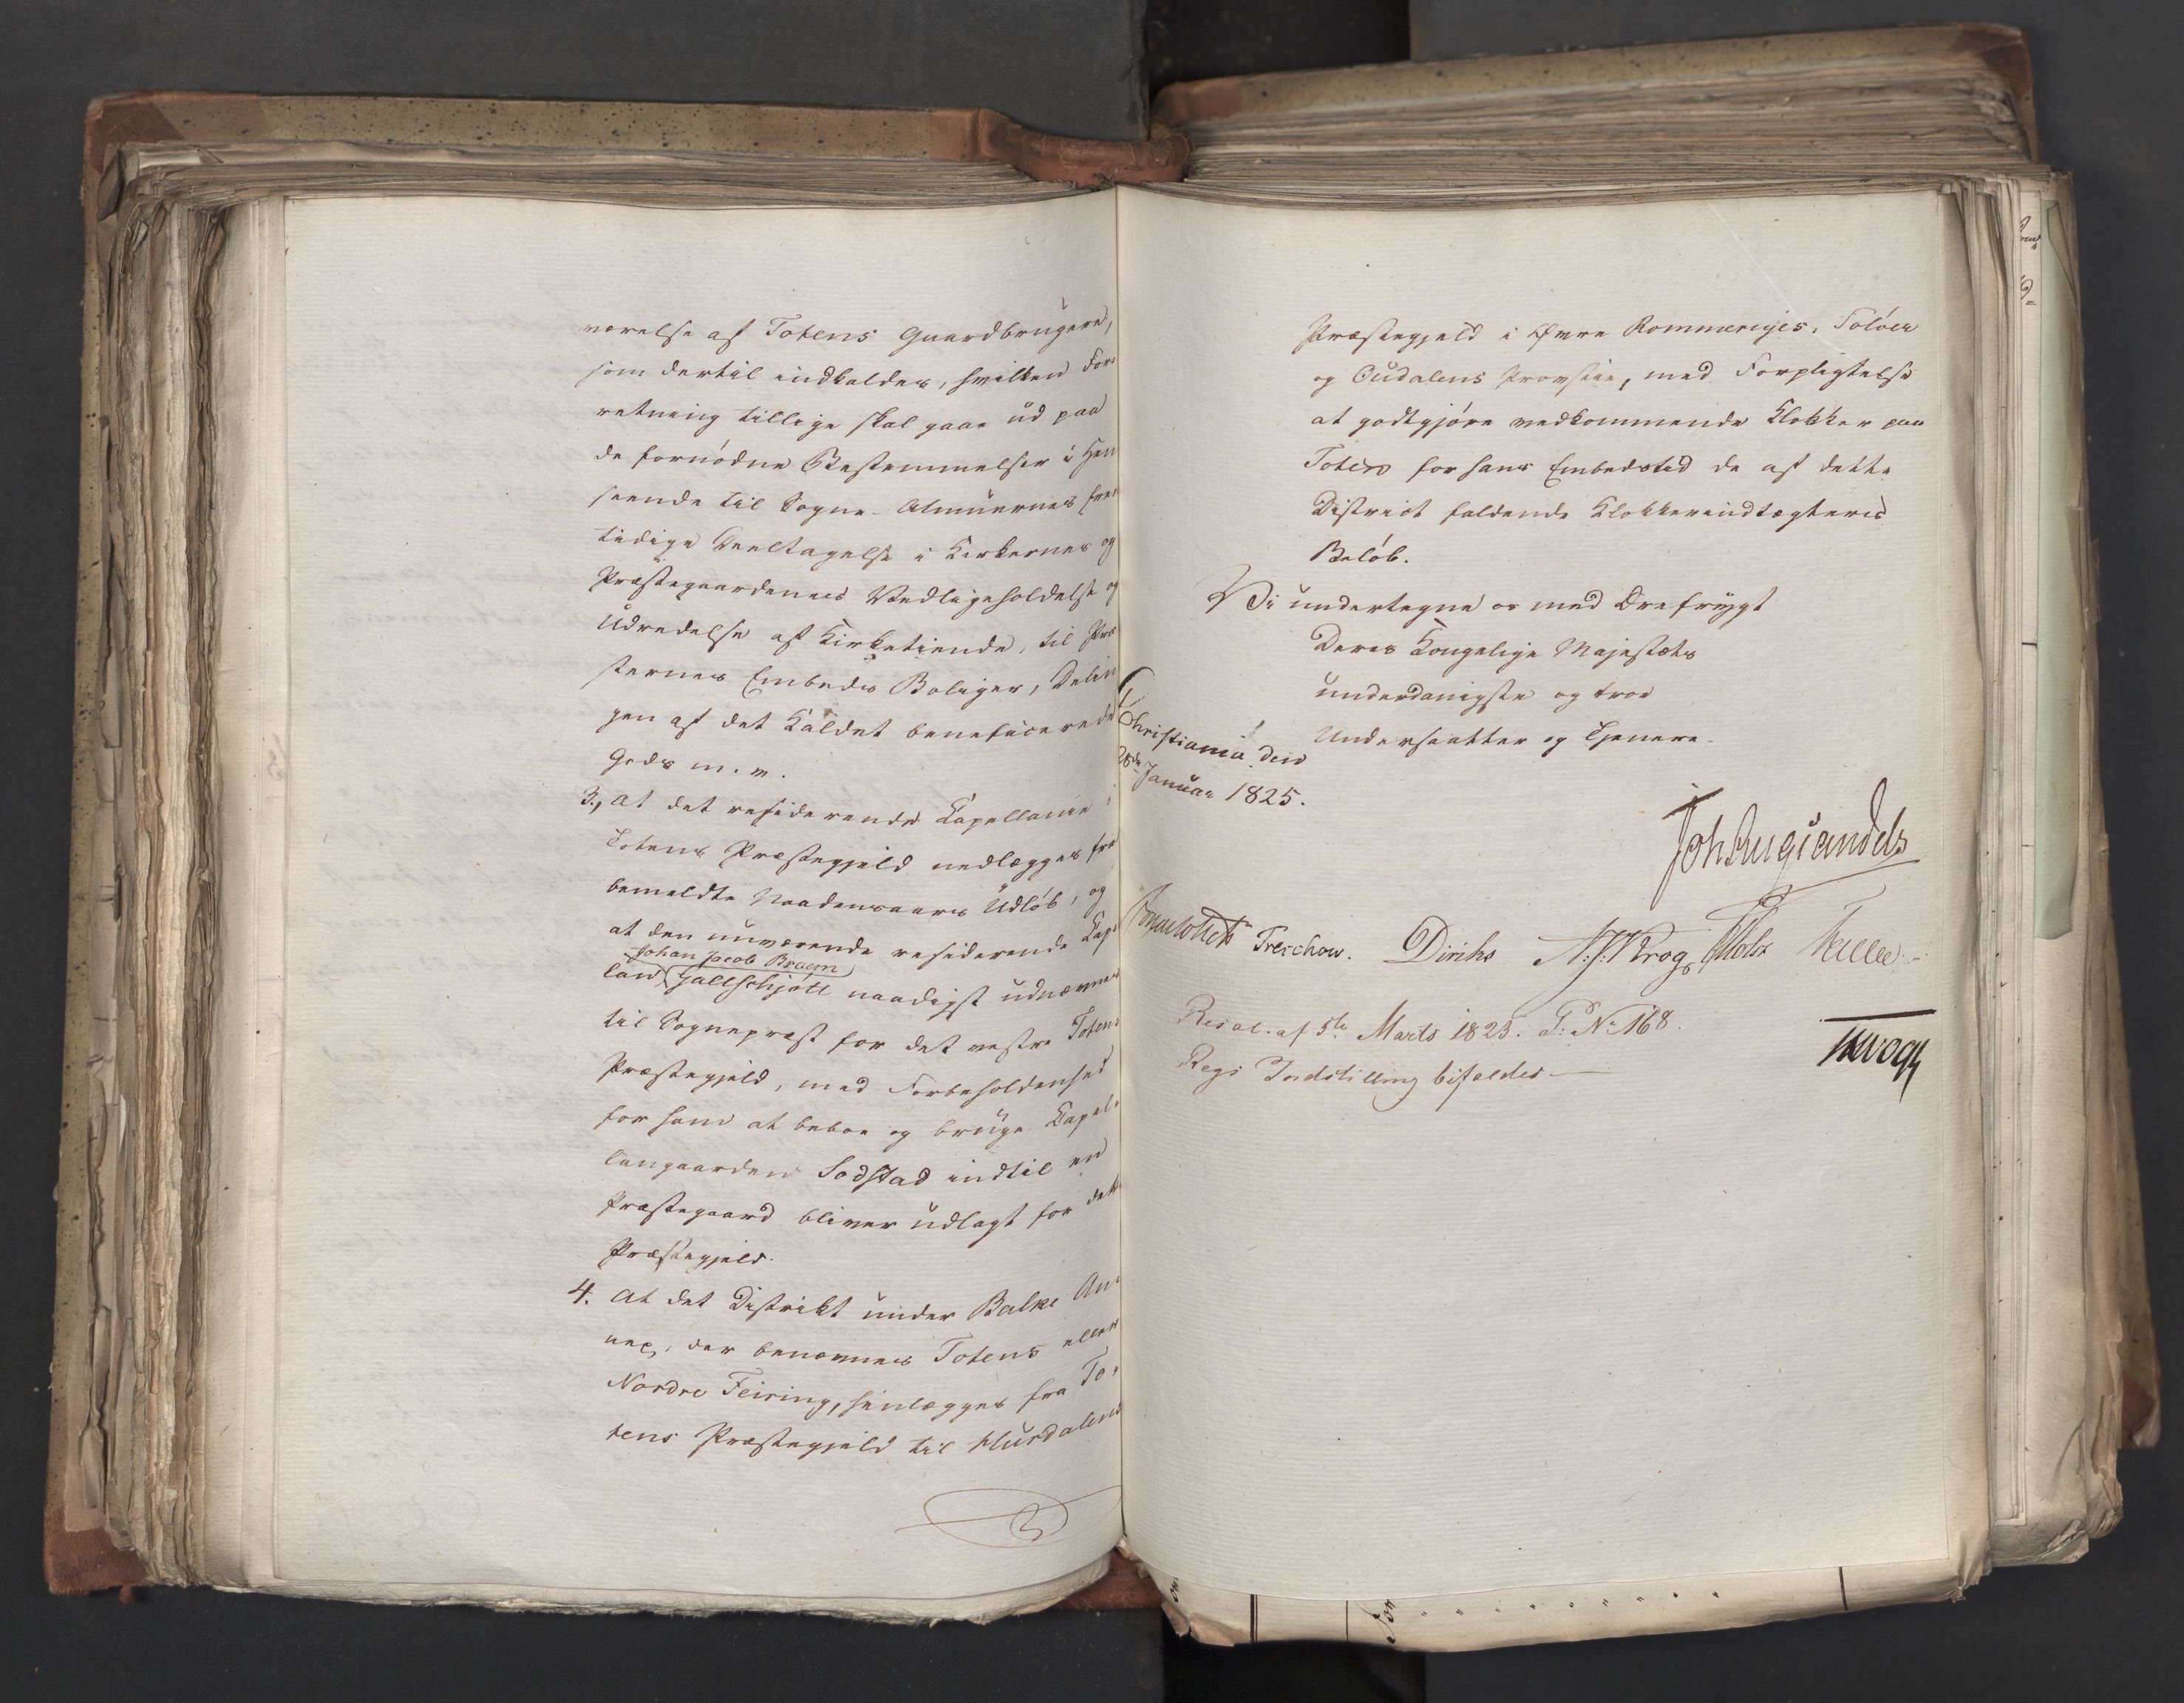 værelse af Totens Gaardbrugere,
som dertil indkaldes, hvilken For-
retning tillige skal gaae ud paa
de fornødne Bestemmelser i Hen
seende til Sogne-Almuernes frem
tidige Deeltagelse i Kirkernes og
Præstegaardenes Vedligeholdelse og
Udredelse af Kirketiende, til Præ
sternes Embeds Boliger, Delin
gen af det Kaldet beneficerede
Gods m. v.
3., at det residerende Kapellanie i
Totens Præstegjeld nedlægges fra
bemeldte Naadensaars Udløb, og
at den nuværende residerende Kapel
Johan Jacob Braem
lan Hallschjøtt naadigst udnævnes
til Sognepræst for det vestre Totens
Præstegjeld, med Forbeholdenhed
for ham at beboe og bruge Kapel-
langaarden Sodstad indtil en
Præstegaard bliver udlagt for dette
Præstegjeld.
4. at det District under Balke An-
nex, der benævnes Totens eller
Nordre Feiring, henlægges fra To-
tens Præstegjeld til Hurdalens
Præstegjeld i Øvre Rommeriges, Soløer
og Oudalens Provstie, med Forpligtelse
at godtgjøre vedkommende Klokker paa
Toten for hans Embedstid de af dette
District faldende Klokkerindtægters
Beløb.
Vi undertegne os med Ærefrygt
Deres Kongelige Majestæts
underdanigste og troe
Undersaatter og Tjenere.
Christiania den
28de Januar 1825.
Joh Aug Sandels
Treschow. Diriks N. J. Krog Motz
Resol. af 5te Marts 1825. P: No 168.
Regs Indstilling bifaldes